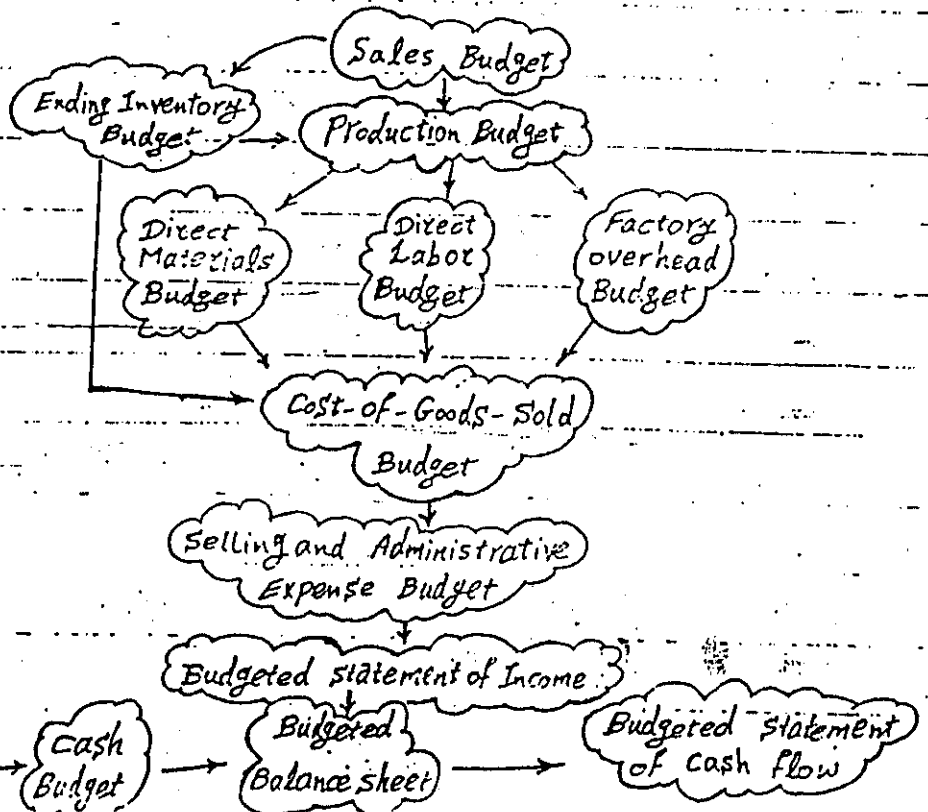 Sales Budget
Ending Inventory
Budget
Production Budget
Direct
Materials
Budget
Direct
Labor
Budget
Factory
overhead
Budget
Cost-of-Goods-Sold
Budget
Selling and Administrative
Expense Budget
Budgeted statement of Income
Cash
Budget
Budgeted
Balance sheet
Budgeted statement
of cash flow